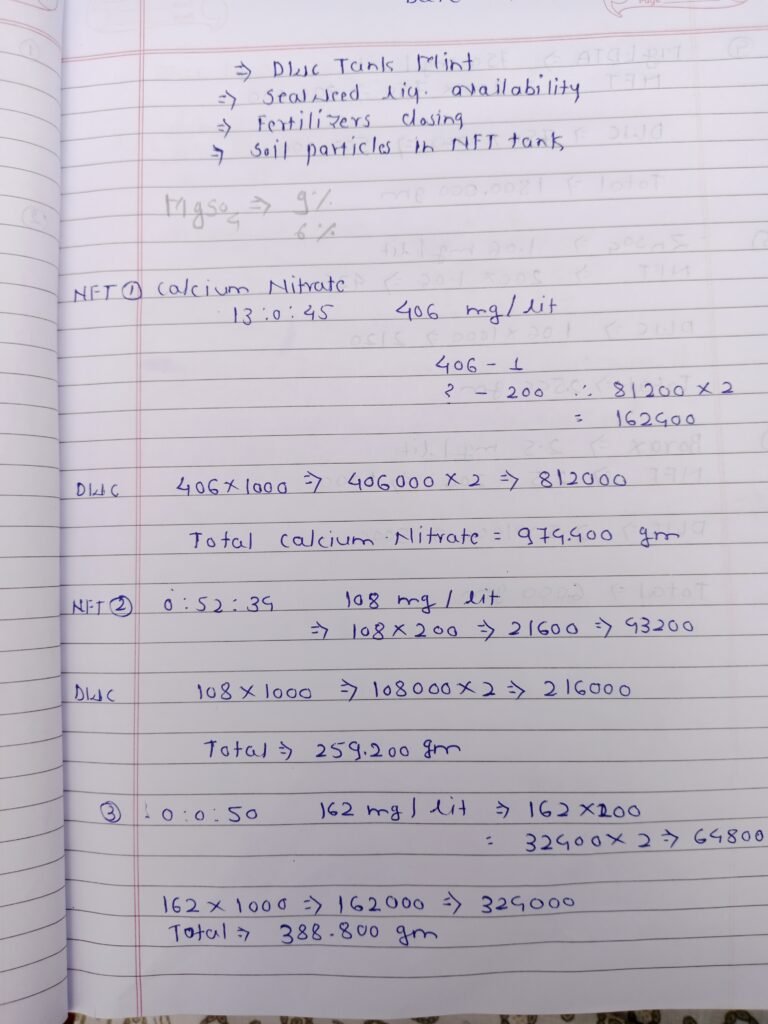 ⇒ DWC Tanks Mint
⇒ Seaweed liq. availability
⇒ Fertilizers dosing
⇒ Soil particles in NFT tank
MgSO4 ⇒ 9%
6%
NFT ① Calcium Nitrate
13:0:45 406 mg/lit
406 - 1
? - 200 ∴ 81200 × 2
= 162400
DWC 406 × 1000 ⇒ 406000 × 2 ⇒ 812000
Total Calcium Nitrate = 974.400 gm
NFT ② 0:52:34 108 mg/lit
⇒ 108 × 200 ⇒ 21600 ⇒ 43200
DWC 108 × 1000 ⇒ 108000 × 2 ⇒ 216000
Total ⇒ 259.200 gm
③ 0:0:50 162 mg/lit ⇒ 162 × 200
= 32400 × 2 ⇒ 64800
162 × 1000 ⇒ 162000 ⇒ 324000
Total ⇒ 388.800 gm